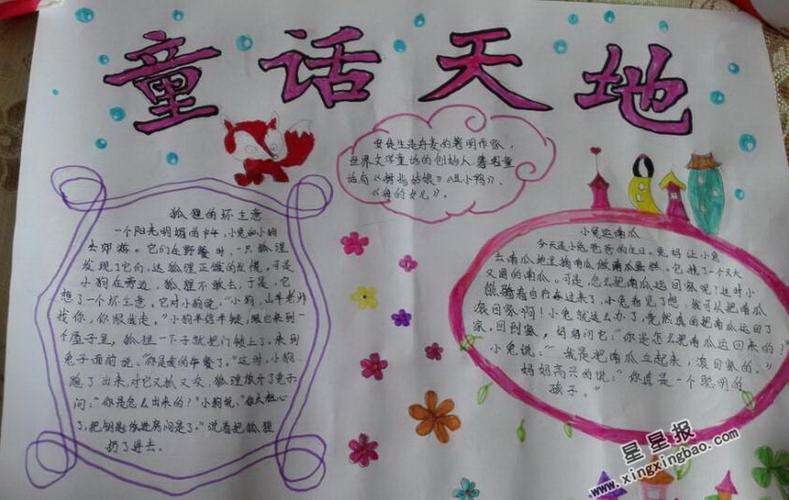 童话天地
安徒生是丹麦的著明作家,
世界文学童话的创始人
话有《拇指姑娘》《丑小鸭》、
《海的女儿》。
狐狸的坏主意
一个阳光明媚的中午,小兔和小狗
去郊游。它们在野餐时,一只狐狸
发现了它们,这狐狸正饿的发慌。可是
小狗在旁边,狐狸不敢去,于是,它
想了一个坏主意。它对小狗说:“小狗,山羊老师
找你,你跟我走。”小狗半信半疑,跟它来到一
个屋子里,狐狸一下子就把门锁上了。来到
兔子面前说:“你是我的午餐了。”这时,小狗
跑了出来,对它又抓又咬,狐狸放开了兔子
问:“你是怎么出来的?”小狗说:“你太粗心
了,把钥匙放进房间里了。”说着把狐狸
扔了出去。
小兔运南瓜
今天是小兔爸爸的生日。兔妈让小兔
去南瓜地里摘南瓜做南瓜蛋糕。它挑了一个又大
又圆的南瓜。可是,怎么把南瓜运回家呢!这时小
熊骑着自行车过来了,小兔看见了想:我可以把南瓜
滚回家啊!小兔就这么办了,竟然真的把南瓜运回了
家,回到家,妈妈问它:“你是怎么把南瓜运回来的?”
小兔说:“我是把南瓜立起来,滚回家的。”
妈妈高兴的说:“你真是一个聪明的
孩子。”
星星报
www.xingxingbao.com